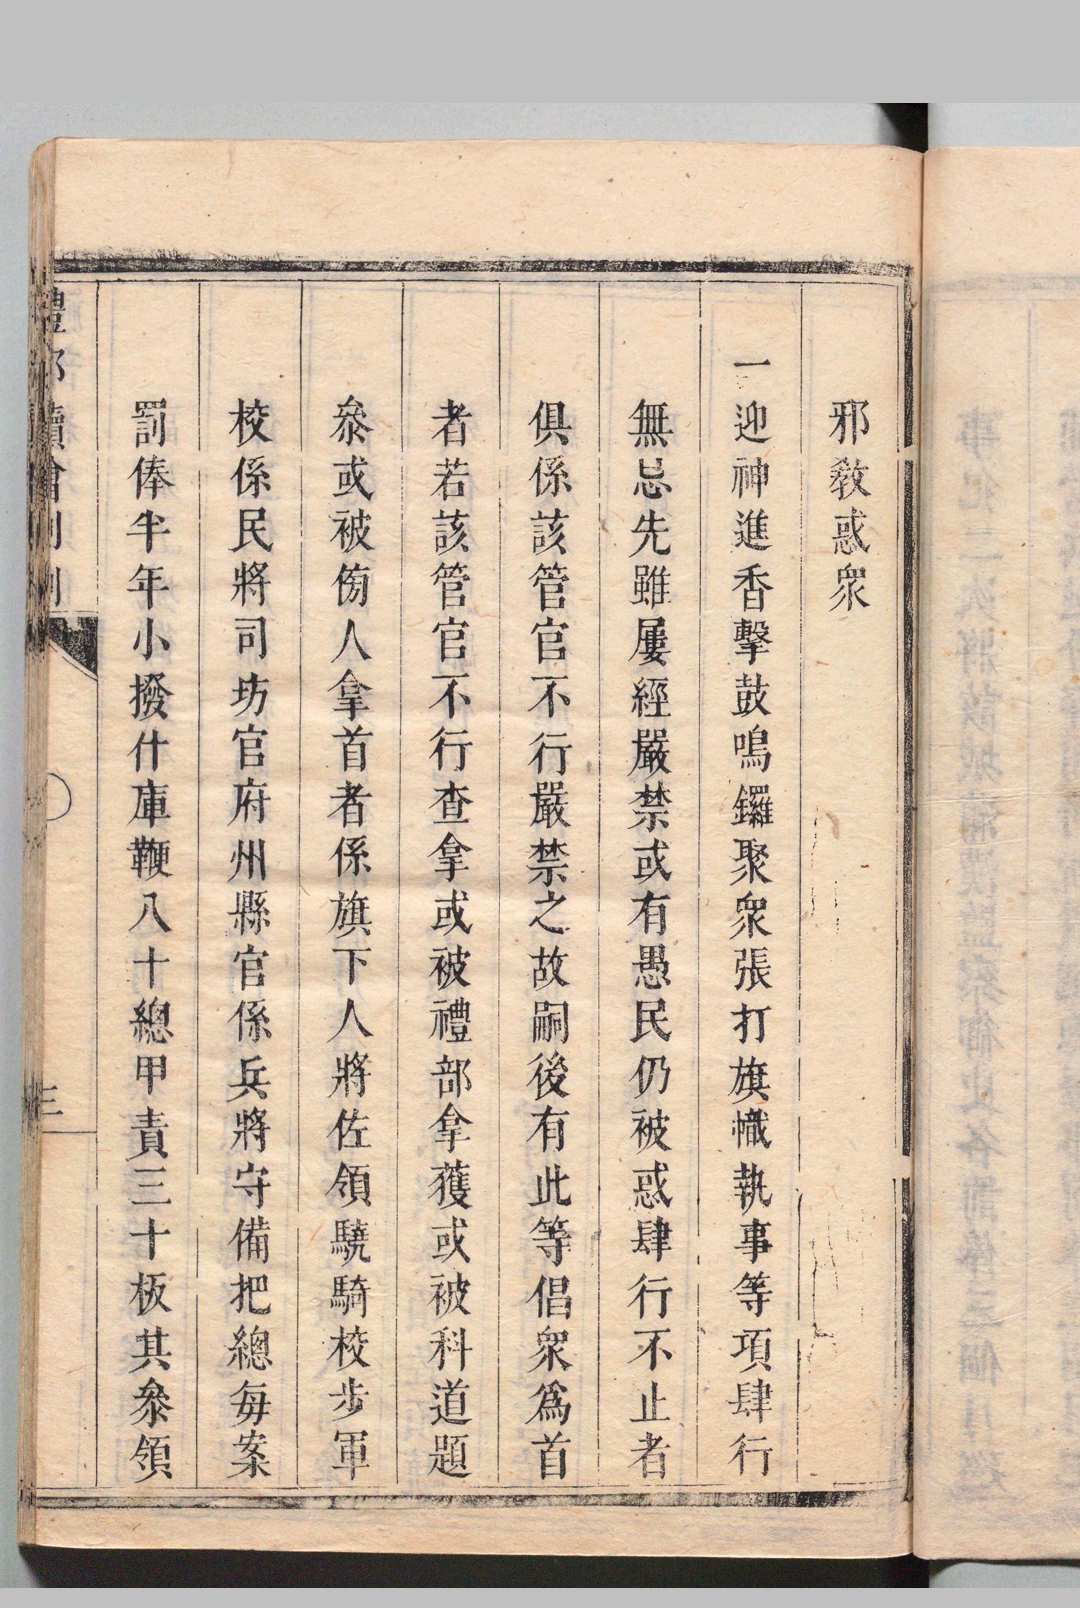 邪敎惑衆
一迎神進香擊鼓鳴鑼聚衆張打旗幟執事等項肆行
無忌先雖屢經嚴禁或有愚民仍被惑肆行不止者
俱係該管官不行嚴禁之故嗣後有此等倡衆爲首
者若該管官不行查拿或被禮部拿獲或被科道題
叅或被傍人拿首者係旗下人將佐領驍騎校步軍
校係民將司坊官府州縣官係兵將守備把總每案
罰俸半年小撥什庫鞭八十總甲責三十板其叅領
三